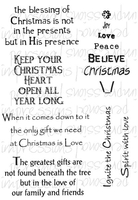 the blessing of
Christmas is not in
in the presents
but in His presence
Keep your
Christmas
Heart
open all
year long
When it comes down to it
the only gift we need
at Christmas is Love
The greatest gifts are
not found beneath the tree
but in the love of
our family and friends
Love
Peace
Believe
Christmas
Ignite the Christmas
Spirit with love